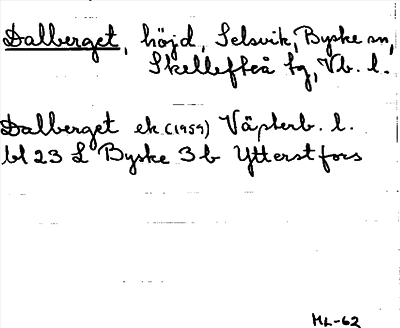 Dalberget, höjd, Selsvik, Byske sn,
Skellefteå tg, Vb. l.
Dalberget ek (1959) Västerb. l.
bl 23 L Byske 3b Ytterstfors
ML-62